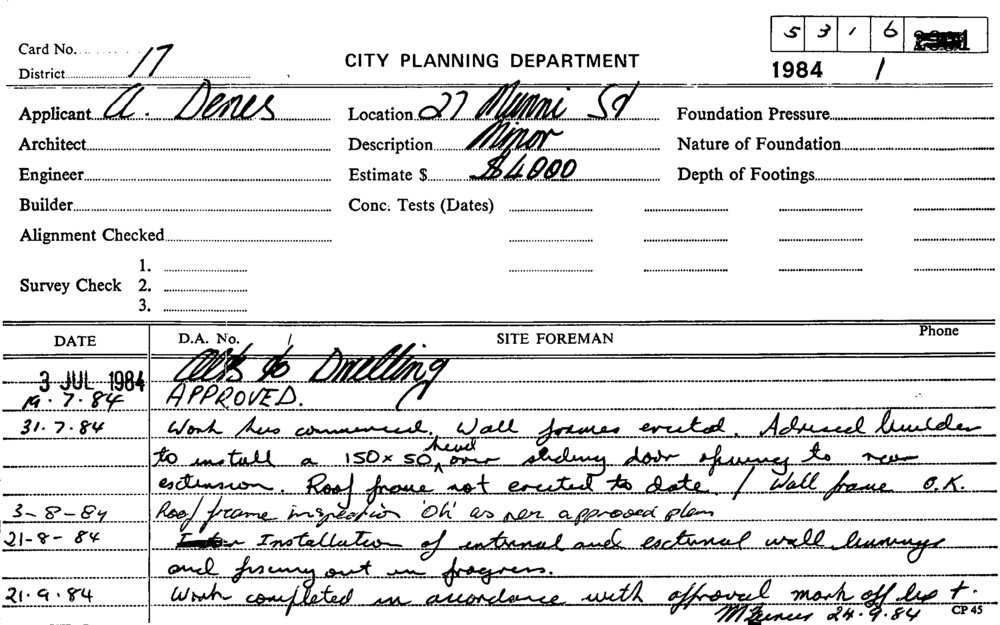 5 3 1 6
Card No. 17
District
CITY PLANNING DEPARTMENT
1984 1
Applicant A. Denes
Location 27 Munni St
Foundation Pressure
Architect
Description Minor
Nature of Foundation
Engineer
Estimate $ $4000
Depth of Footings
Builder
Conc. Tests (Dates)
Alignment Checked
1.
Survey Check 2.
3.
DATE D.A. No. SITE FOREMAN Phone
3 JUL 1984 Alts to Dwelling
19.7.84 APPROVED.
31.7.84 Work has commenced. Wall frames erected. Advised builder
to install a 150 x 50 head over sliding door opening to rear
extension. Roof frame not erected to date. / Wall frame O.K.
3-8-84 Roof frame inspection 'Ok' as per approved plan
21-8-84 Installation of internal and external wall linings
and fixing out in progress.
21.9.84 Work completed in accordance with approval mark off
24.9.84 CP 45